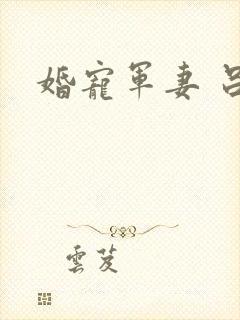 婚寵軍妻 呂
雲芨